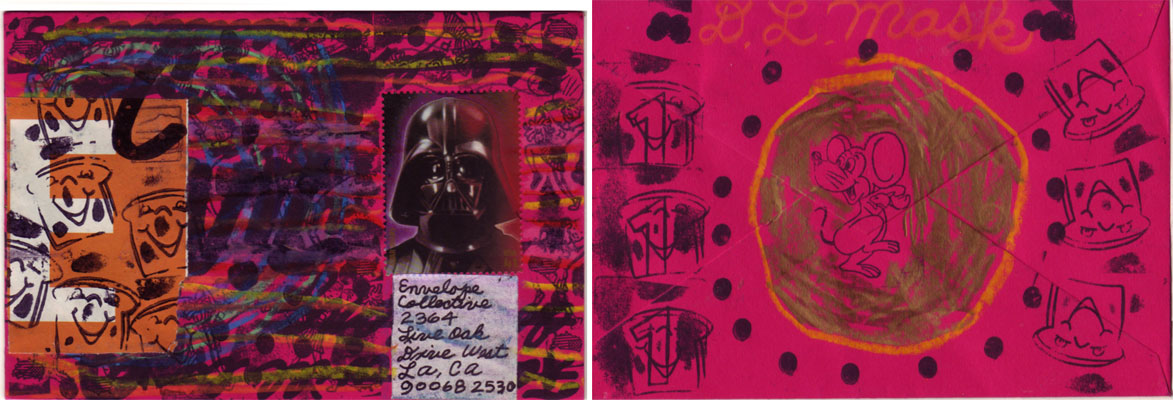 Envelope
Collective
2364
Live Oak
Drive West
La, CA
90068 2530
D. L. Mask